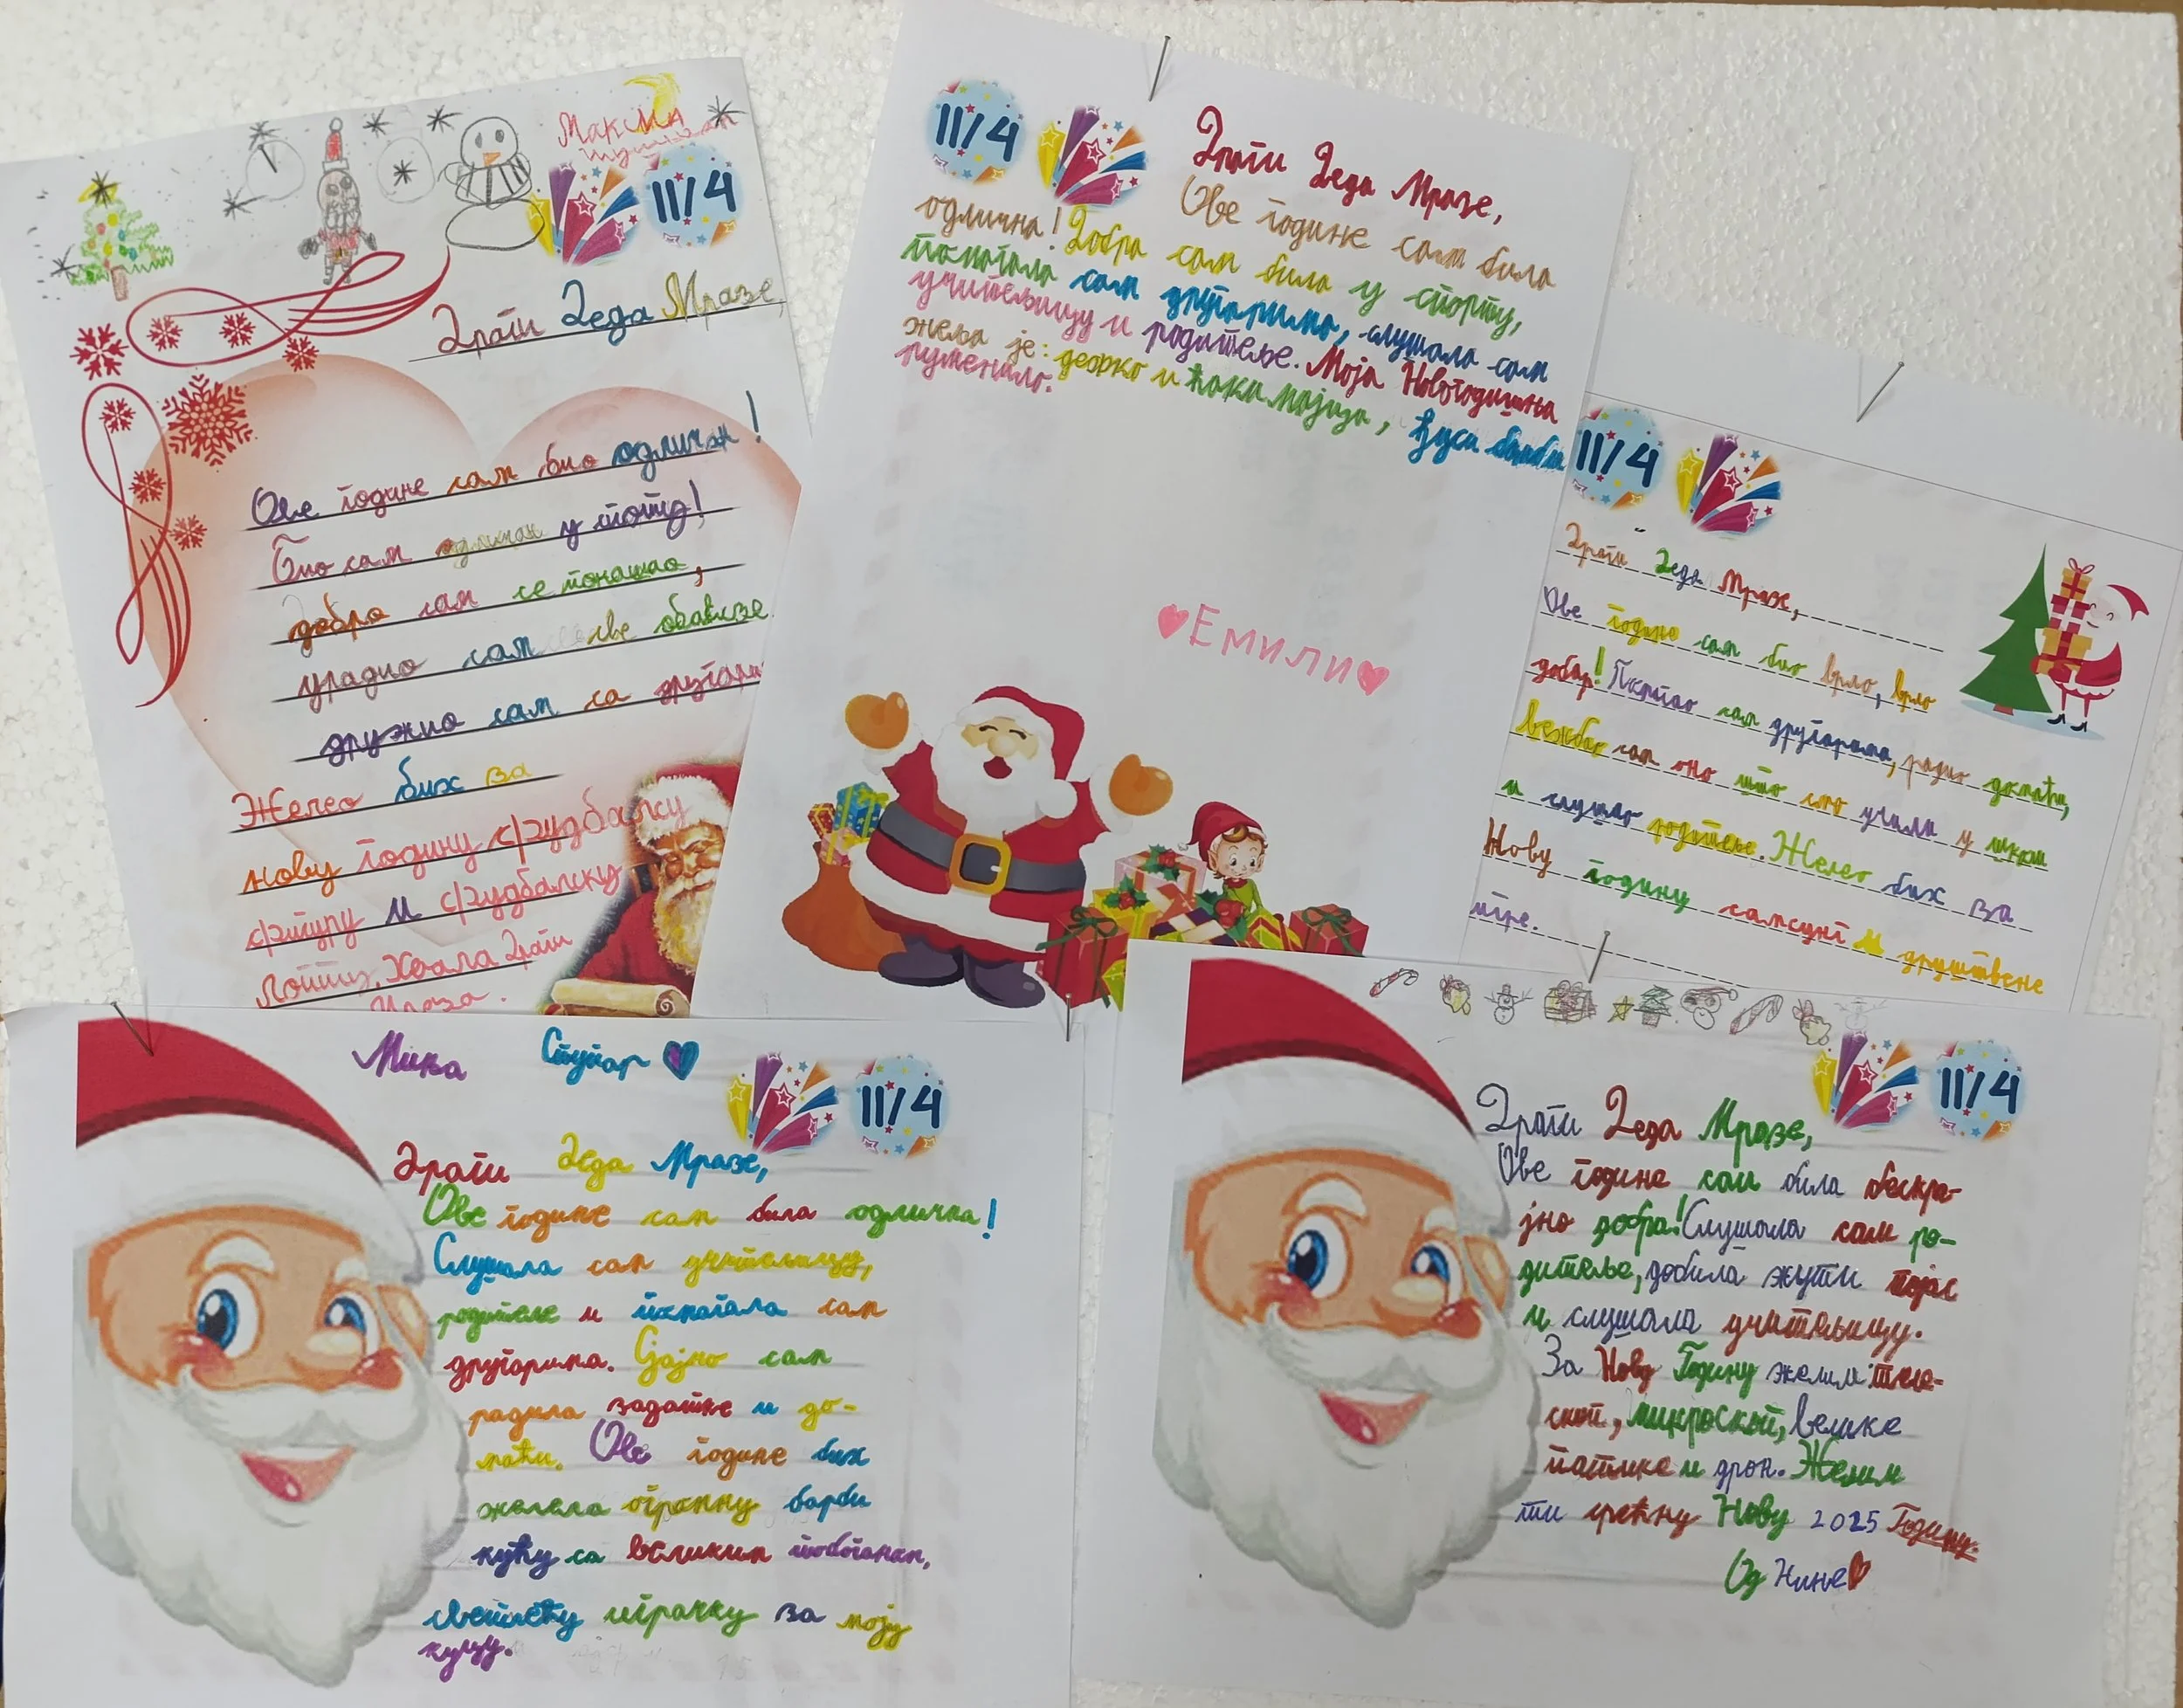 Максим
11/4
Драги Деда Мразе,
Ове године сам био одличан!
Био сам одличан у
добро сам се понашао,
урадио сам све обавезе
дружио сам са другари
Желео бих за
нову годину фудбалску
и фудбалску
лопту. Хвала Драги
Мразе.
11/4
Драги Деда Мразе,
Ове године сам била
одлична! Добра сам била у спорту,
помагала сам другарима, слушала сам
учитељицу и родитеље. Моја Новогодишња
жеља је: деорко и ћаки мајица, Ђуси бамби
руменило.
Емили
11/4
Драги Деда Мразе,
Ове године сам био врло, врло
добар! Помагао сам другарима, радио домаћи,
вежбао сам оно што смо учили у школи
и слушао родитеље. Желео бих за
Нову годину самсунг и друштвене
игре.
Мика Ступар
11/4
Драги Деда Мразе,
Ове године сам била одлична!
Слушала сам учитељицу,
родитеље и помагала сам
другарима. Сјајно сам
радила задатке и до-
маћи. Ове године бих
желела огромну барби
кућу са великим тобоганом,
светлећу играчку за моју
куцу.
11/4
Драги Деда Мразе,
Ове године сам била бескра-
јно добра! Слушала сам ро-
дитеље, добила жути појас
и слушала учитељицу.
За Нову Годину желим теле-
скоп, микроскоп, велике
патике и дрон. Желим
ти срећну Нову 2025 Годину.
Од Нине